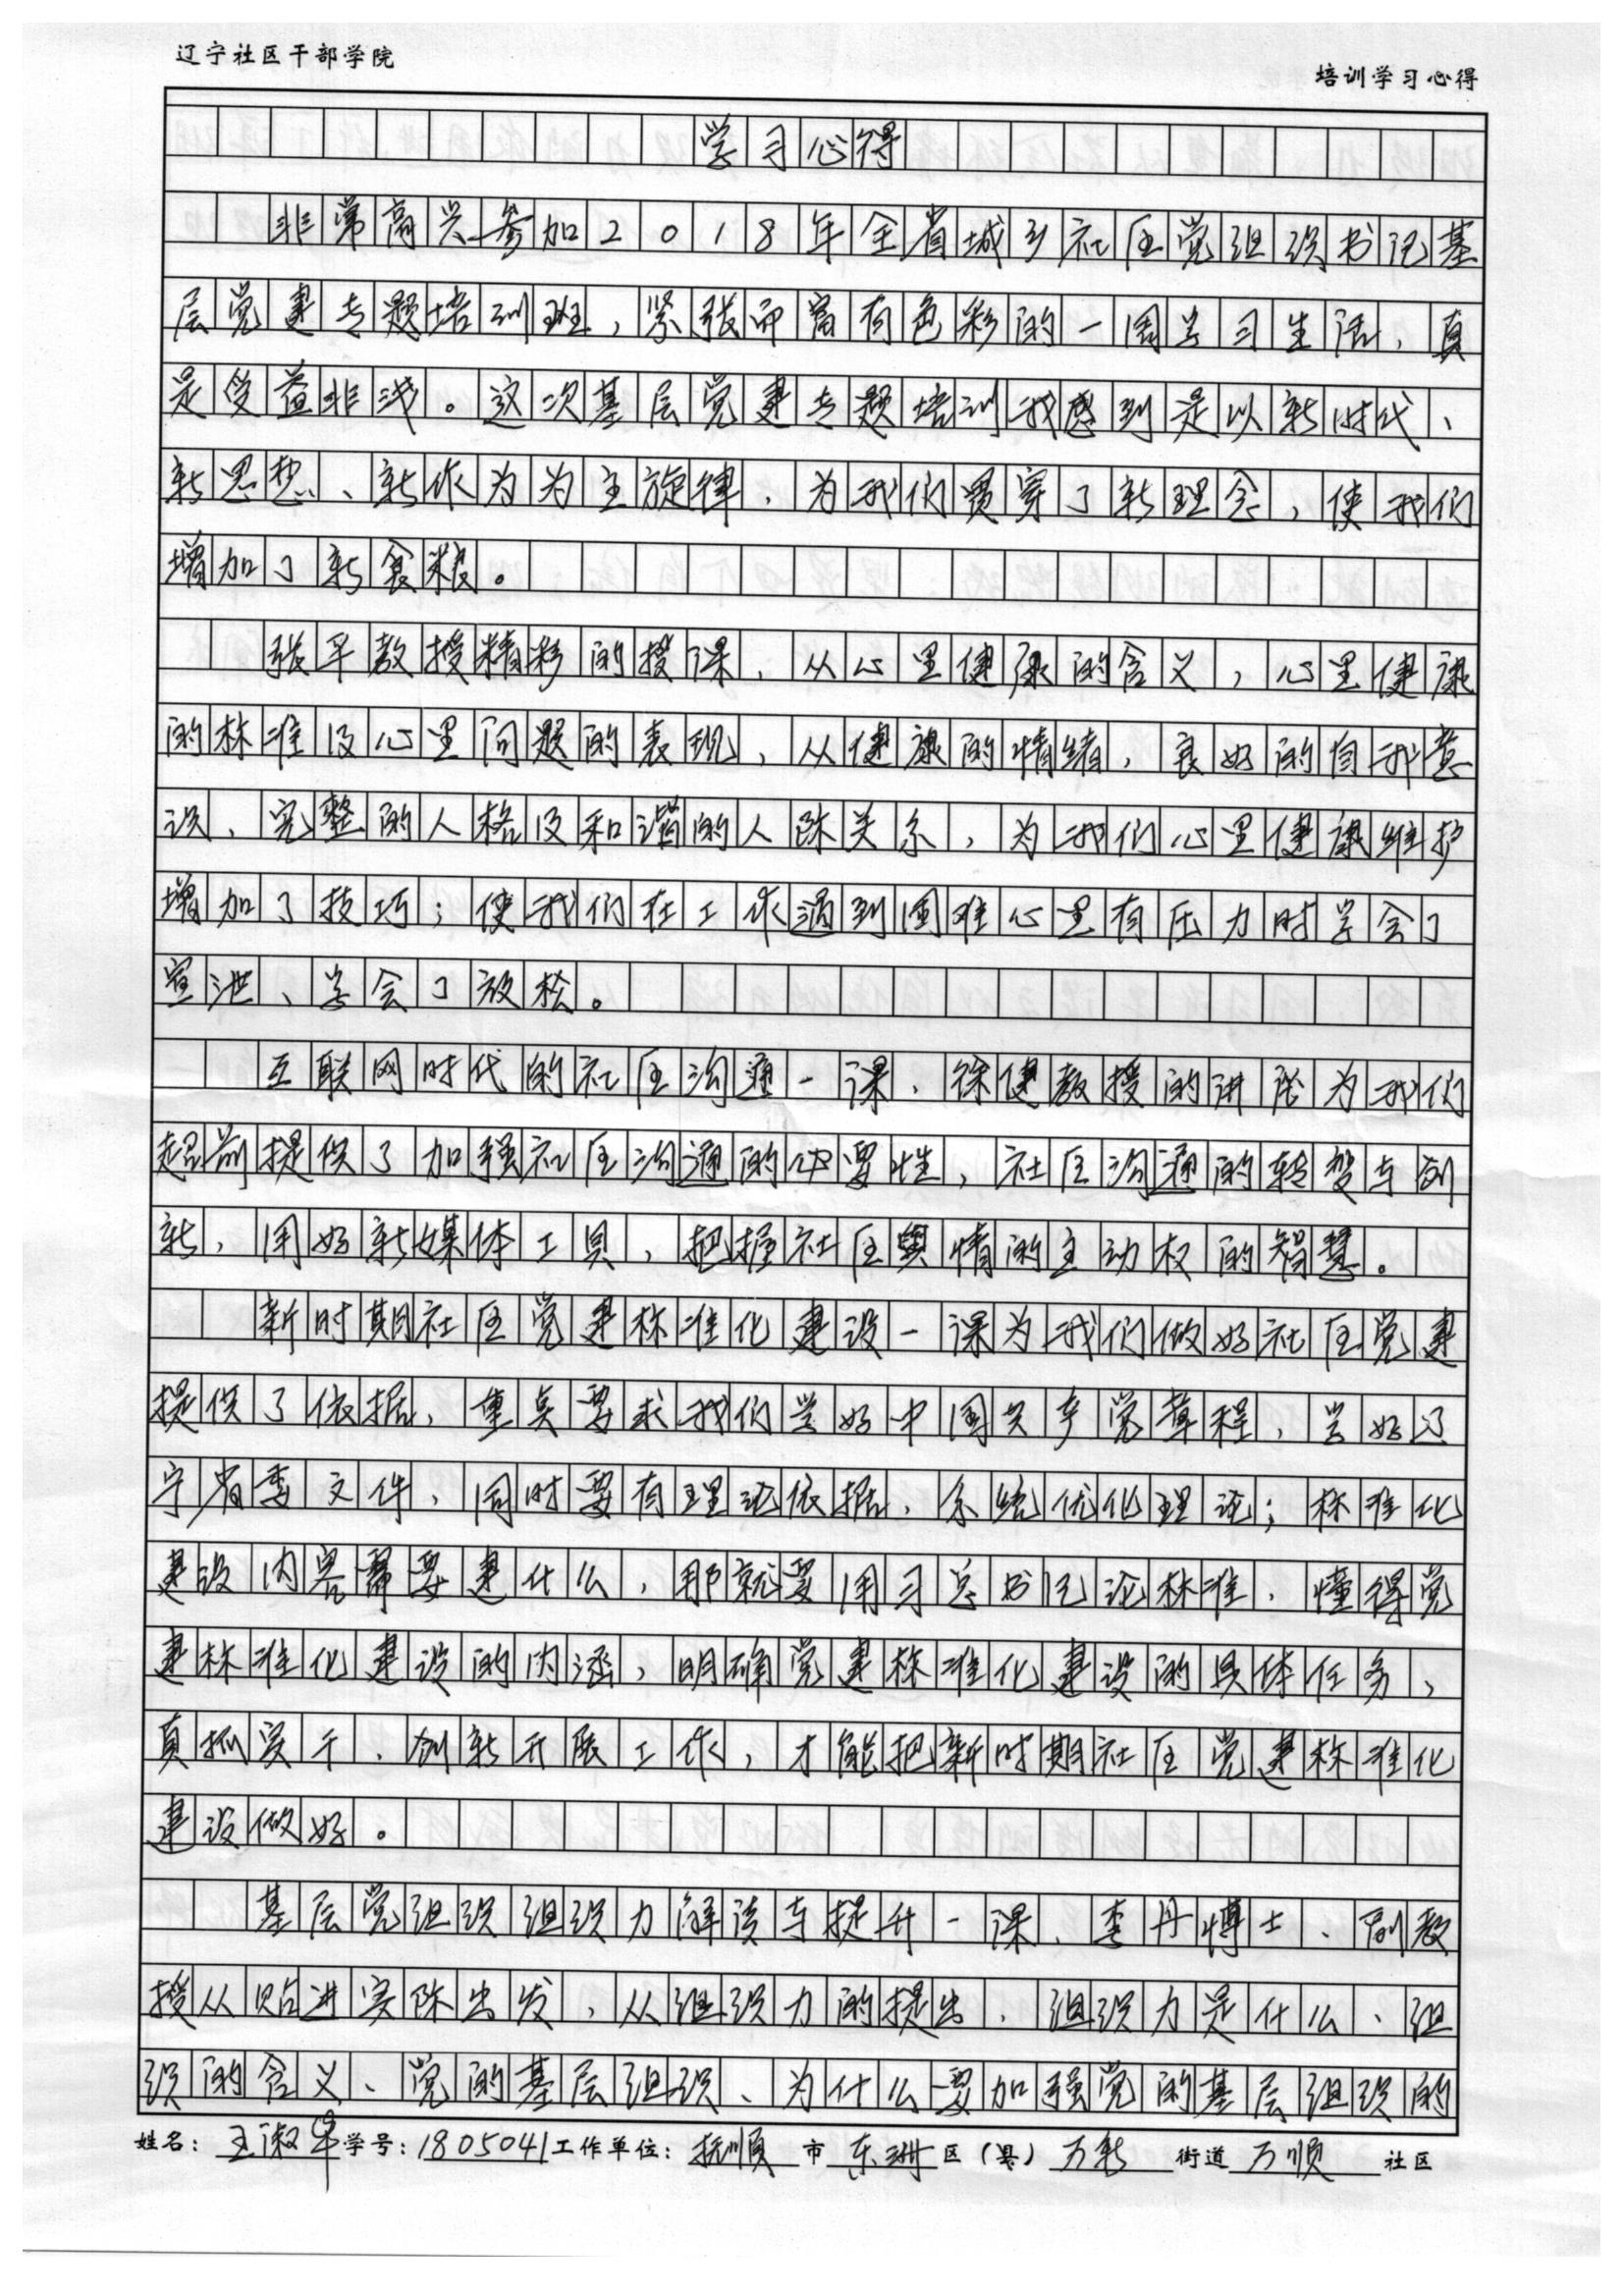 辽宁社区干部学院
培训学习心得
学习心得
非常高兴参加2018年全省城乡社区党组织书记基
层党建专题培训班,紧张而富有色彩的一周学习生活,真
是受益非浅。这次基层党建专题培训我感到是以新时代、
新思想、新作为为主旋律,为我们贯穿了新理念,使我们
增加了新食粮。
张平教授精彩的授课,从心里健康的含义,心里健康
的标准及心里问题的表现,从健康的情绪,良好的自我意
识、完整的人格及和谐的人际关系,为我们心里健康维护
增加了技巧;使我们在工作遇到困难心里有压力时学会了
宣泄、学会了放松。
互联网时代的社区沟通一课,徐健教授的讲话为我们
超前提供了加强社区沟通的必要性,社区沟通的转变与创
新,用好新媒体工具,把握社区舆情的主动权的智慧。
新时期社区党建标准化建设一课为我们做好社区党建
提供了依据,重点要求我们学好中国共产党章程,学好辽
宁省委文件,同时要有理论依据,系统优化理论;标准化
建设内容需要建什么,那就要用习总书记论标准,懂得党
建标准化建设的内涵,明确党建标准化建设的具体任务,
真抓实干,创新开展工作,才能把新时期社区党建标准化
建设做好。
基层党组织组织力解读与提升一课,李丹博士、副教
授从贴进实际出发,从组织力的提出,组织力是什么、组
织的含义、党的基层组织、为什么要加强党的基层组织的
姓名:王淑华学号:1805041工作单位:抚顺市东洲区(县)万新街道万顺社区